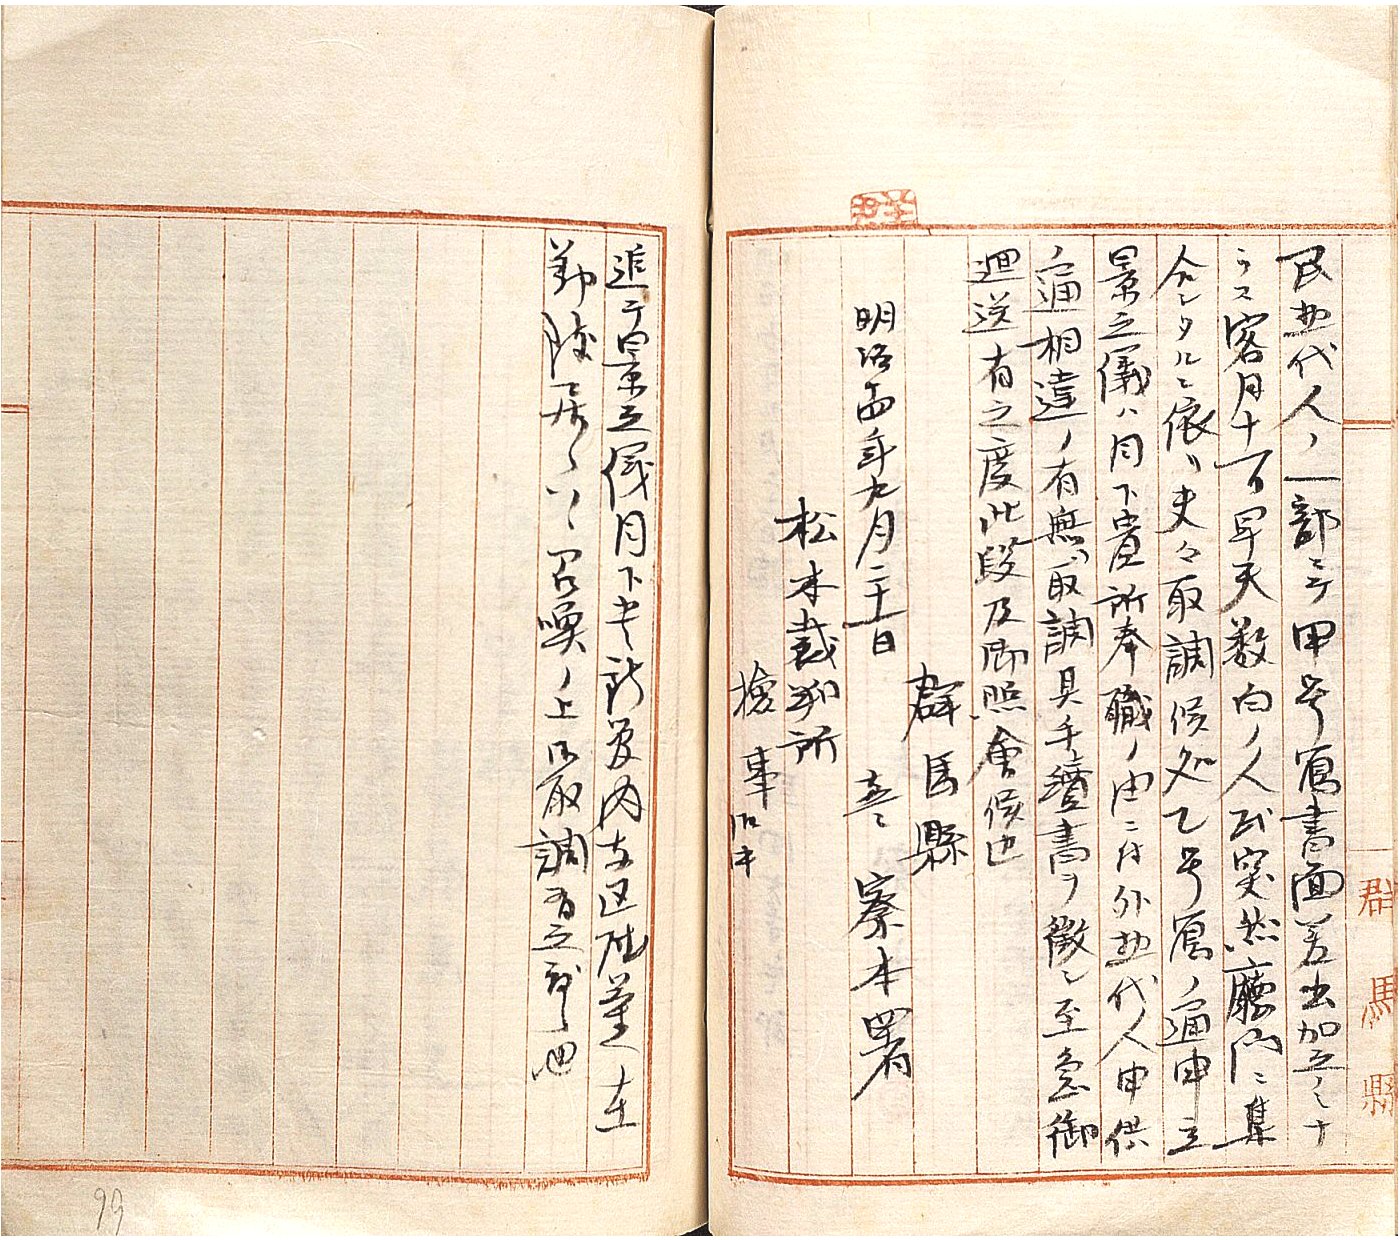 民惣代人ノ一部ニテ甲号写書面差出加之ナ
ラス客月十一日早天数百ノ人民突然廳門ニ集
合シタルニ依リ夫々取調候処乙号写ノ通申立
景之儀ハ目下貴所奉職ノ由ニ付外惣代人申供
ノ通相違ノ有無御取調具手續書ヲ徴シ至急御
廻送有之度此段及御照會候也
群馬縣
明治十四年九月二十一日
警察本署
松本裁判所
検事御中
追テ景之儀目下貴所管内
勤致居候ハヽ召喚ノ上御取調有之度候也
群馬縣
99